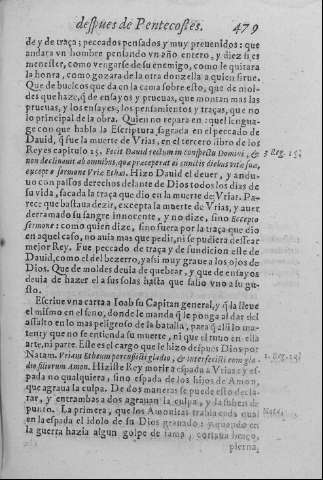 despues de Pentecostes. 479
de y de traça; peccados pensados y muy preuenidos: que
andara vn hombre pensando vn año entero, y diez si es
menester, como vengarse de su enemigo, como le quitara
la honra, como gozara de la otra donzella a quien sirue.
Que de buelcos que da en la cama sobre esto, que de mol-
des que haze, q̃ de ensayos y prueuas, que montan mas las
prueuas, y los ensayes, los pensamientos y traças, que no
lo principal de la obra. Quien no repara en: quel lengua-
ge con que habla la Escriptura sagrada en el peccado de
Dauid, q̃ fue la muerte de Vrias, en el tercero libro de los
Reyes capitulo 15. Fecit Dauid rectum in conspectu Domini, & 3 Reg. 15.
non declinauit ab omnibus, quæ præceperat ei cunctis diebus vitæ suæ,
excepto sermone Vriæ Ethæi. Hizo Dauid el deuer, y andu-
uo con passos derechos delante de Dios todos los dias de
su vida, sacada la traça que dio en la muerte de Vrias. Pa-
rece que bastaua dezir, excepta la muerte de Vrias, y auer
derramado su sangre innocente, y no dize, sino Excepto
sermone: como quien dize, sino fuera por la traça que dio
en aquel caso, no auia mas que pedir, ni se pudiera dessear
mejor Rey. Fue peccado de traça y de fundicion elle de
Dauid, como el del bezerro, y assi muy graue a los ojos de
Dios. Que de moldes deuia de quebrar, y que de ensayos
deuia de hazer el a sus solas hasta que salio vno a su gu-
sto.
Escriue vna carta a Ioab su Capitan general, y q̃ la lleue
el mismo en el seno, donde le manda q̃ le ponga al dar del
assalto en lo mas peligroso de la batalla, para q̃ alli lo ma-
ten: y que no se entienda su muerte, ni que el mato en ella
arte, ni parte. Esse es el cargo que le hizo despues Dios por
Natam. Vriam Ethæum percussisti gladio, & interfecisti eum gla- 2. Reg. 12.
dio filiorum Amon. Hiziste Rey morir a espada a Vrias: y es-
pada no qualquiera, sino espada de los hijos de Amon,
que agraua la culpa. De dos maneras se puede esto decla-
rar, y entrambas a dos agrauan la culpa, y la suben de
punto. La primera, que los Amonitas trahia cada qual
en la espada el idolo de su Dios grauado: y quando en
la guerra hazia algun golpe de fama, cortaua braço,
pierna,